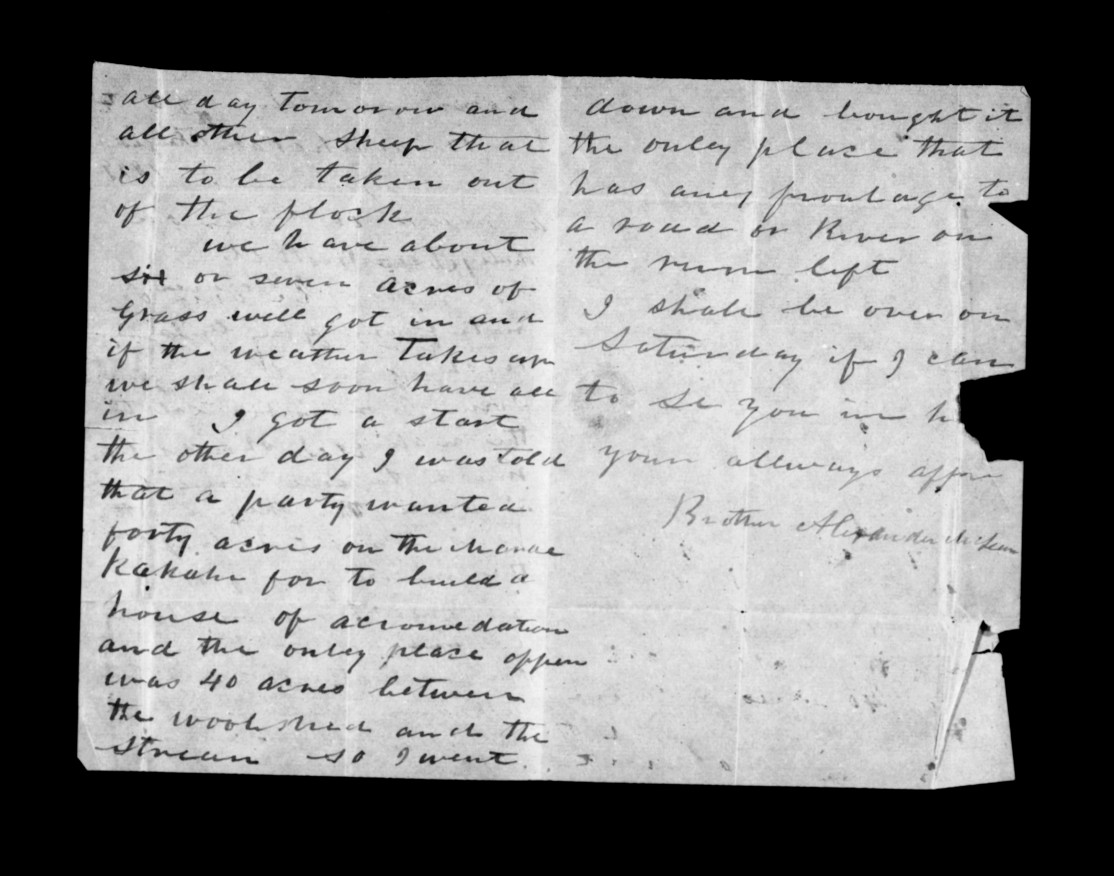 all day tomorow and
all other sheep that
is to be taken out
of the flock
we have about
six or seven acres of
grass well got in and
if the weather takes up
we shall soon have all
in I got a start
the other day I was told
that a party wanted
forty acres on the
Kakahi for to build a
house of accomedation
and the onley place oppen
was 40 acres between
the woolshed and the
stream so I went
down and bought it
the onley place that
has aney frontage to
a road or River on
the runn left
I shall be over on
Saturday if I can
to se you in
your allways affn
Brother Alexander McLean